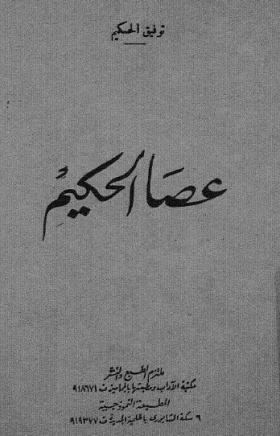 توفيق الحكيم
عصَا الحكيمْ
ملتزم الطبع والنشر
مكتبة الآداب ومطبعتها بالجماميز ت ٩١٨٦٧١
المطبعة النموذجية
٦ سكة الشابورى بالحلمية الجديدة ت ٩١٩٣٧٧